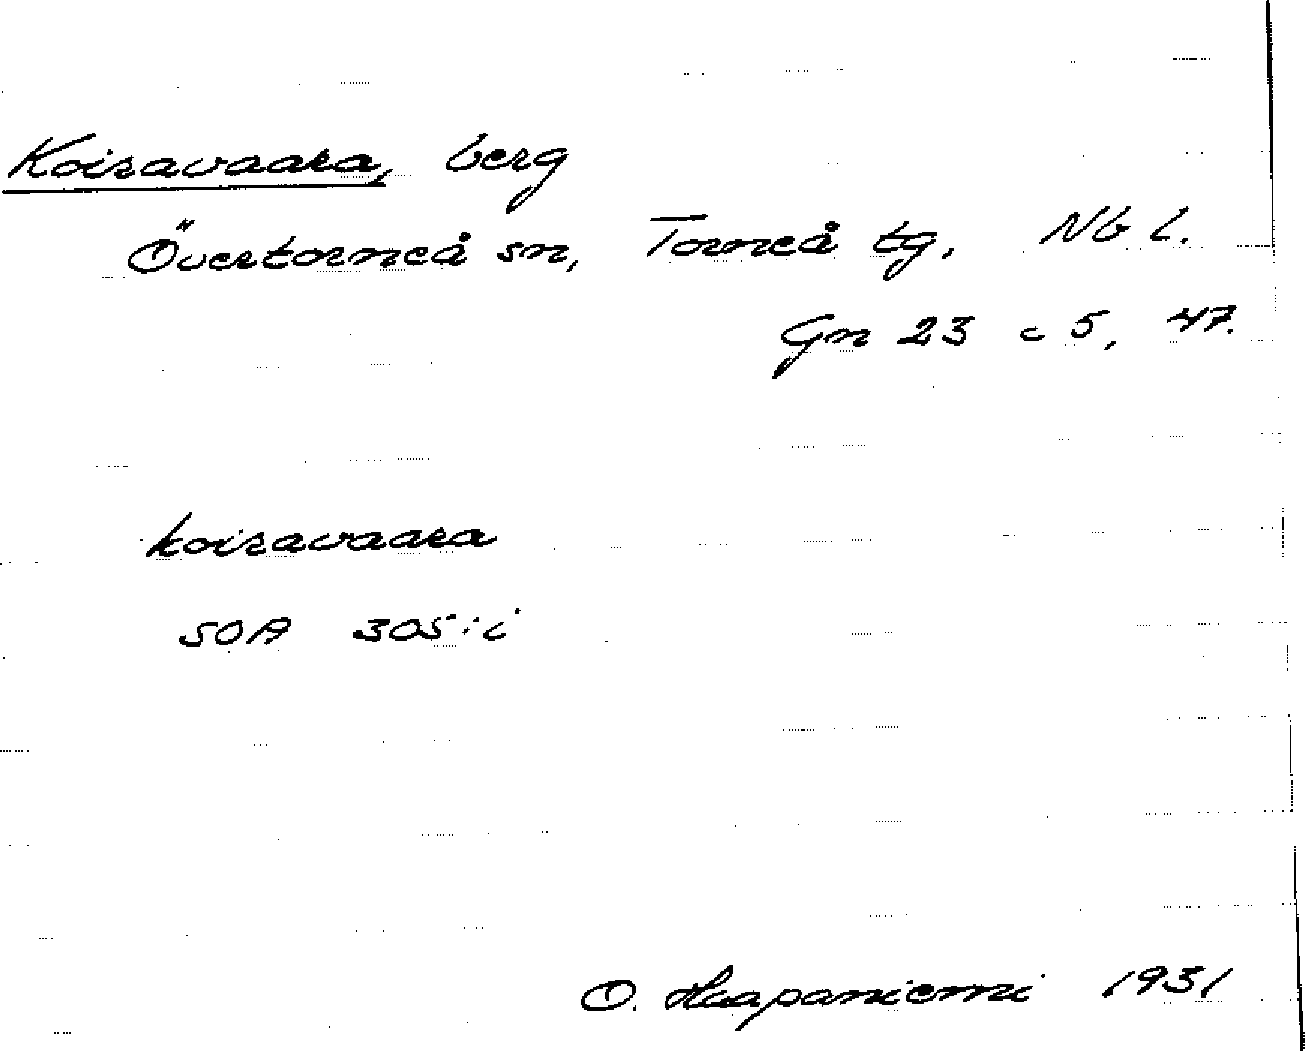 Koiravaara, berg
Övertorneå sn, Torneå tg, Nb l.
Gn 23 c 5, 47.
koiravaara
SOA 305:i
O. Haapaniemi 1931